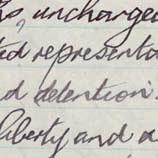 s, uncharged
ted representa
d detention
liberty and a